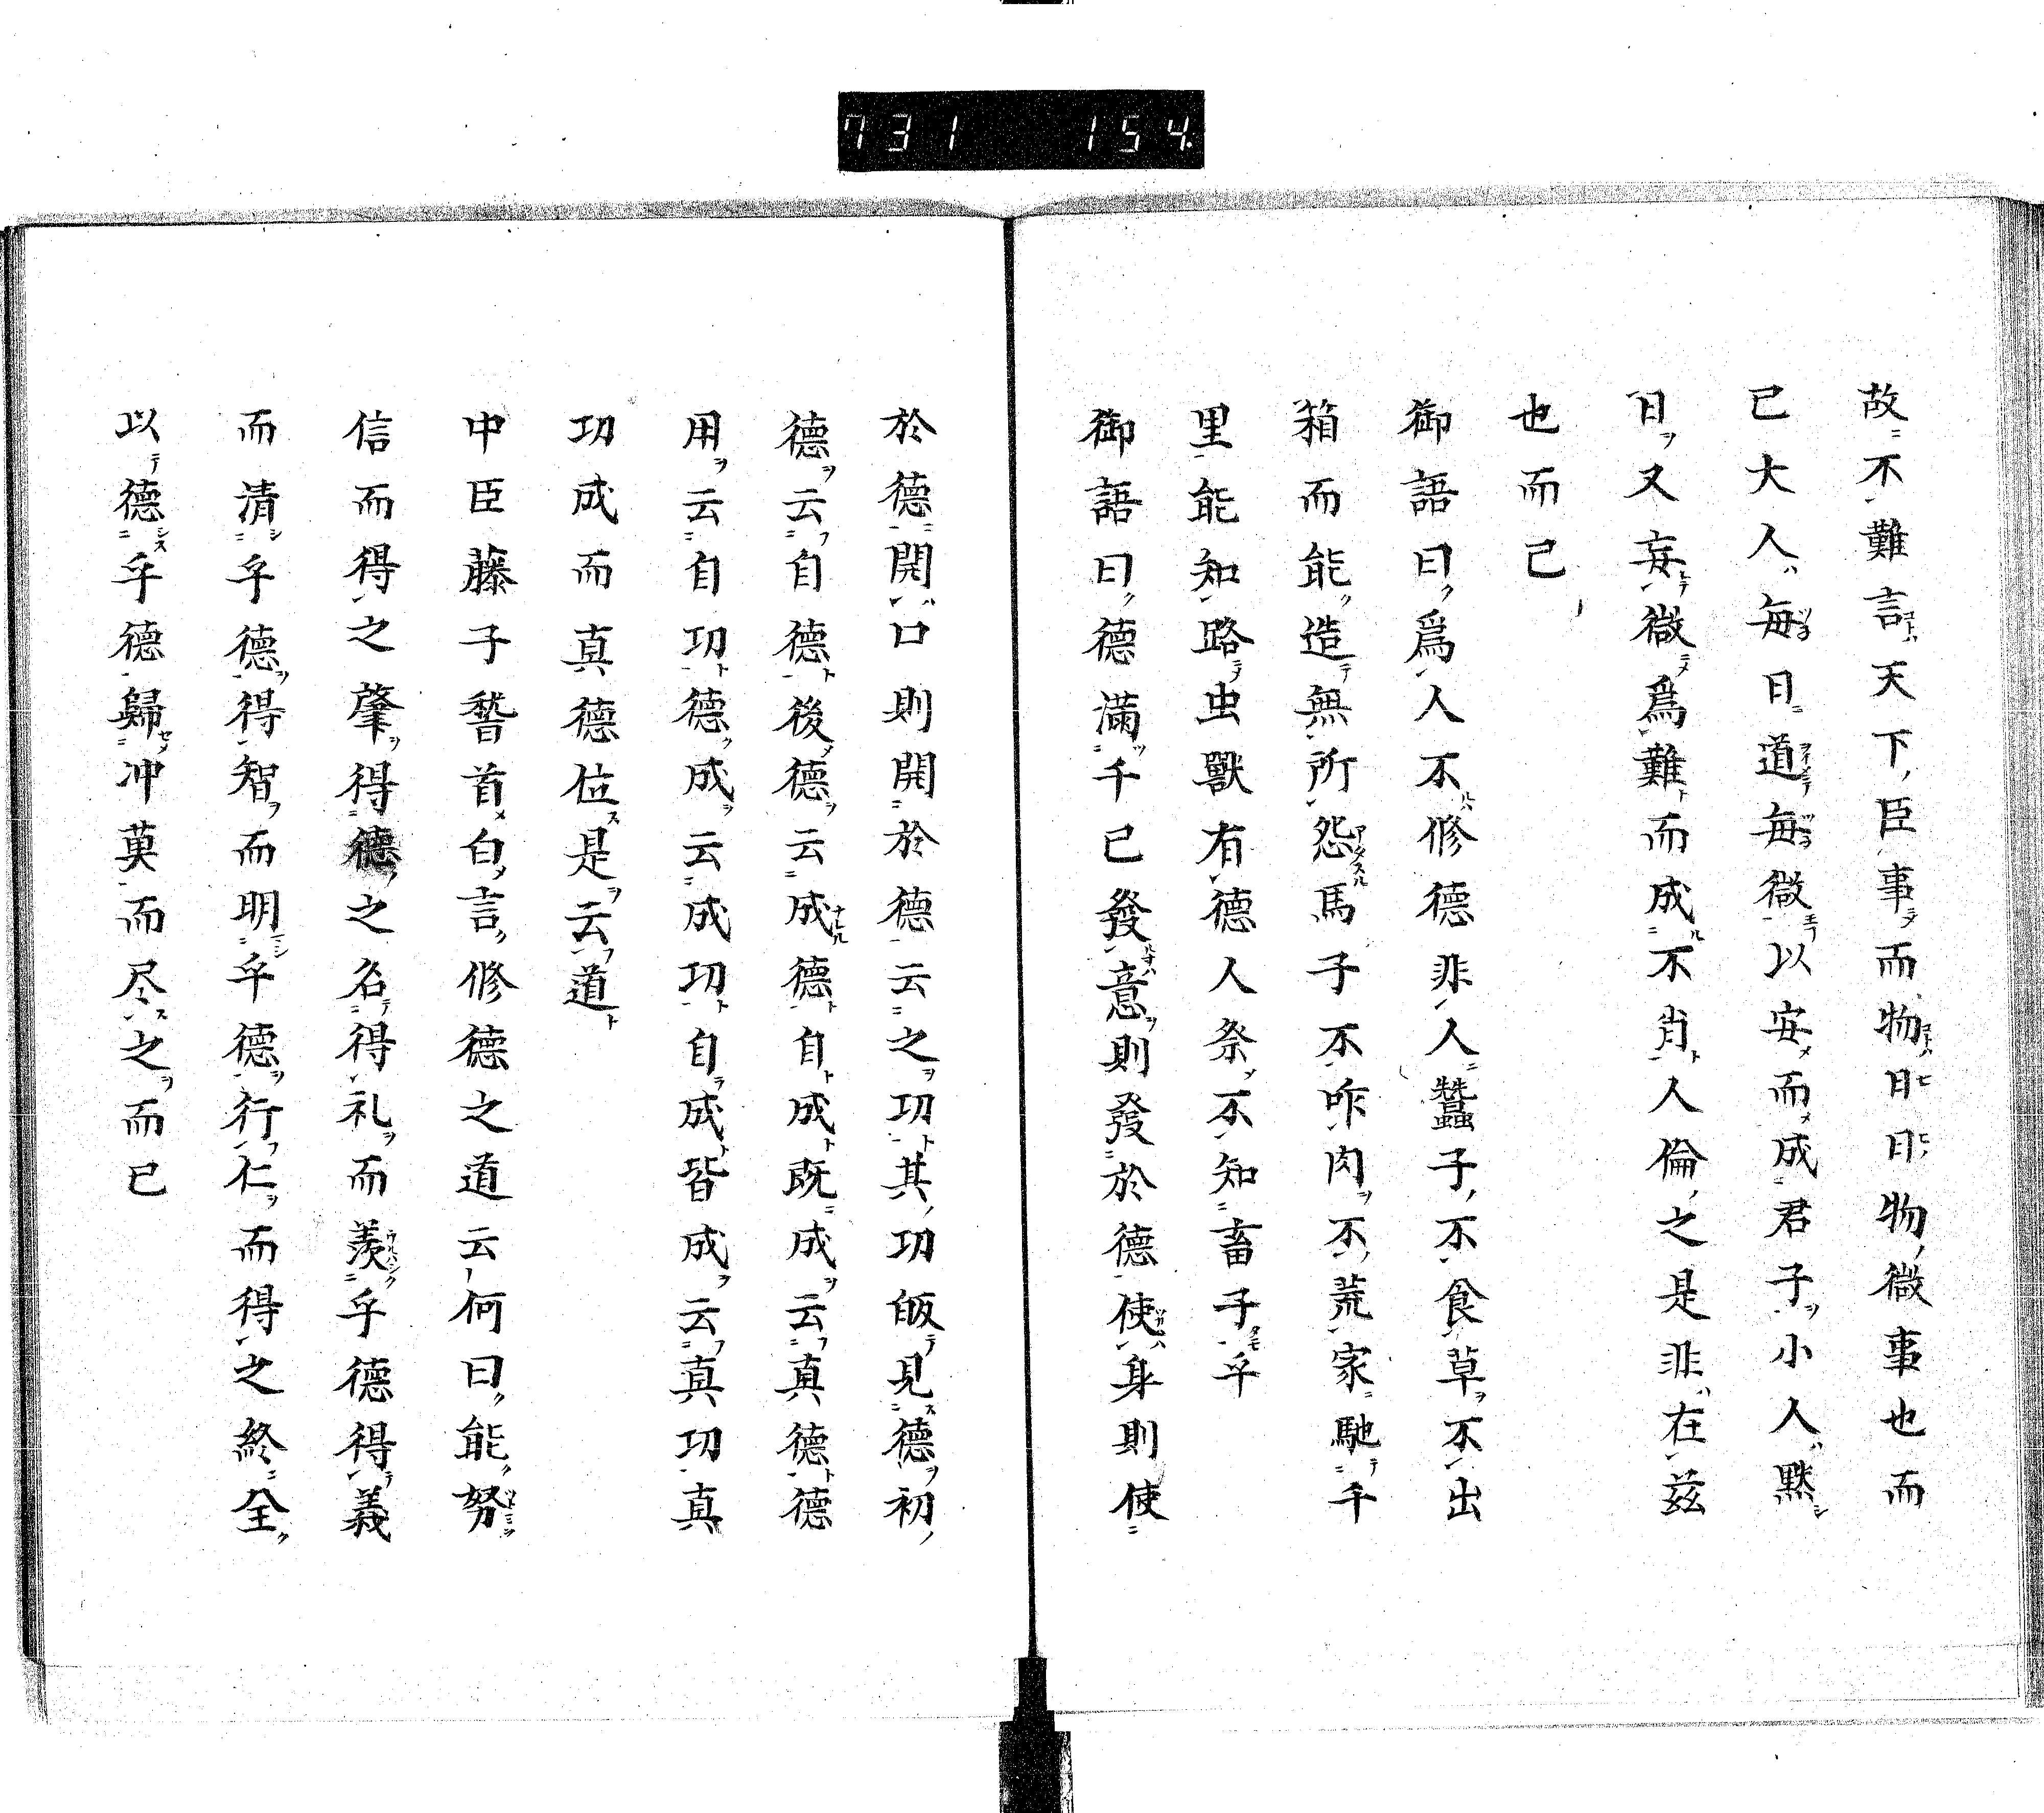 731 154.
故不難言天下臣事而物日日物微事也而
已大人每日道每微以安而成君子小人黙
日又妄微爲難而成不肖人倫之是非在茲
也而已
御語曰爲人不修德非人蠶子不食草不出
箱而能造無所怨馬子不咋肉不荒家馳千
里能知路虫獸有德人祭不知畜子乎
御語曰德滿千已發意則發於德使身則使
於德開口則開於德云之功其功皈見德初
德云自德後德云成德自成既成云真德德
用云自功德成云成功自成皆成云真功真
功成而真德位是云道
中臣藤子𥡴首白言修德之道云何曰能努
信而得之肇得德之名得礼而羨乎德得義
而清乎德得智而明乎德行仁而得之終全
以德乎德歸冲莫而尽之而已